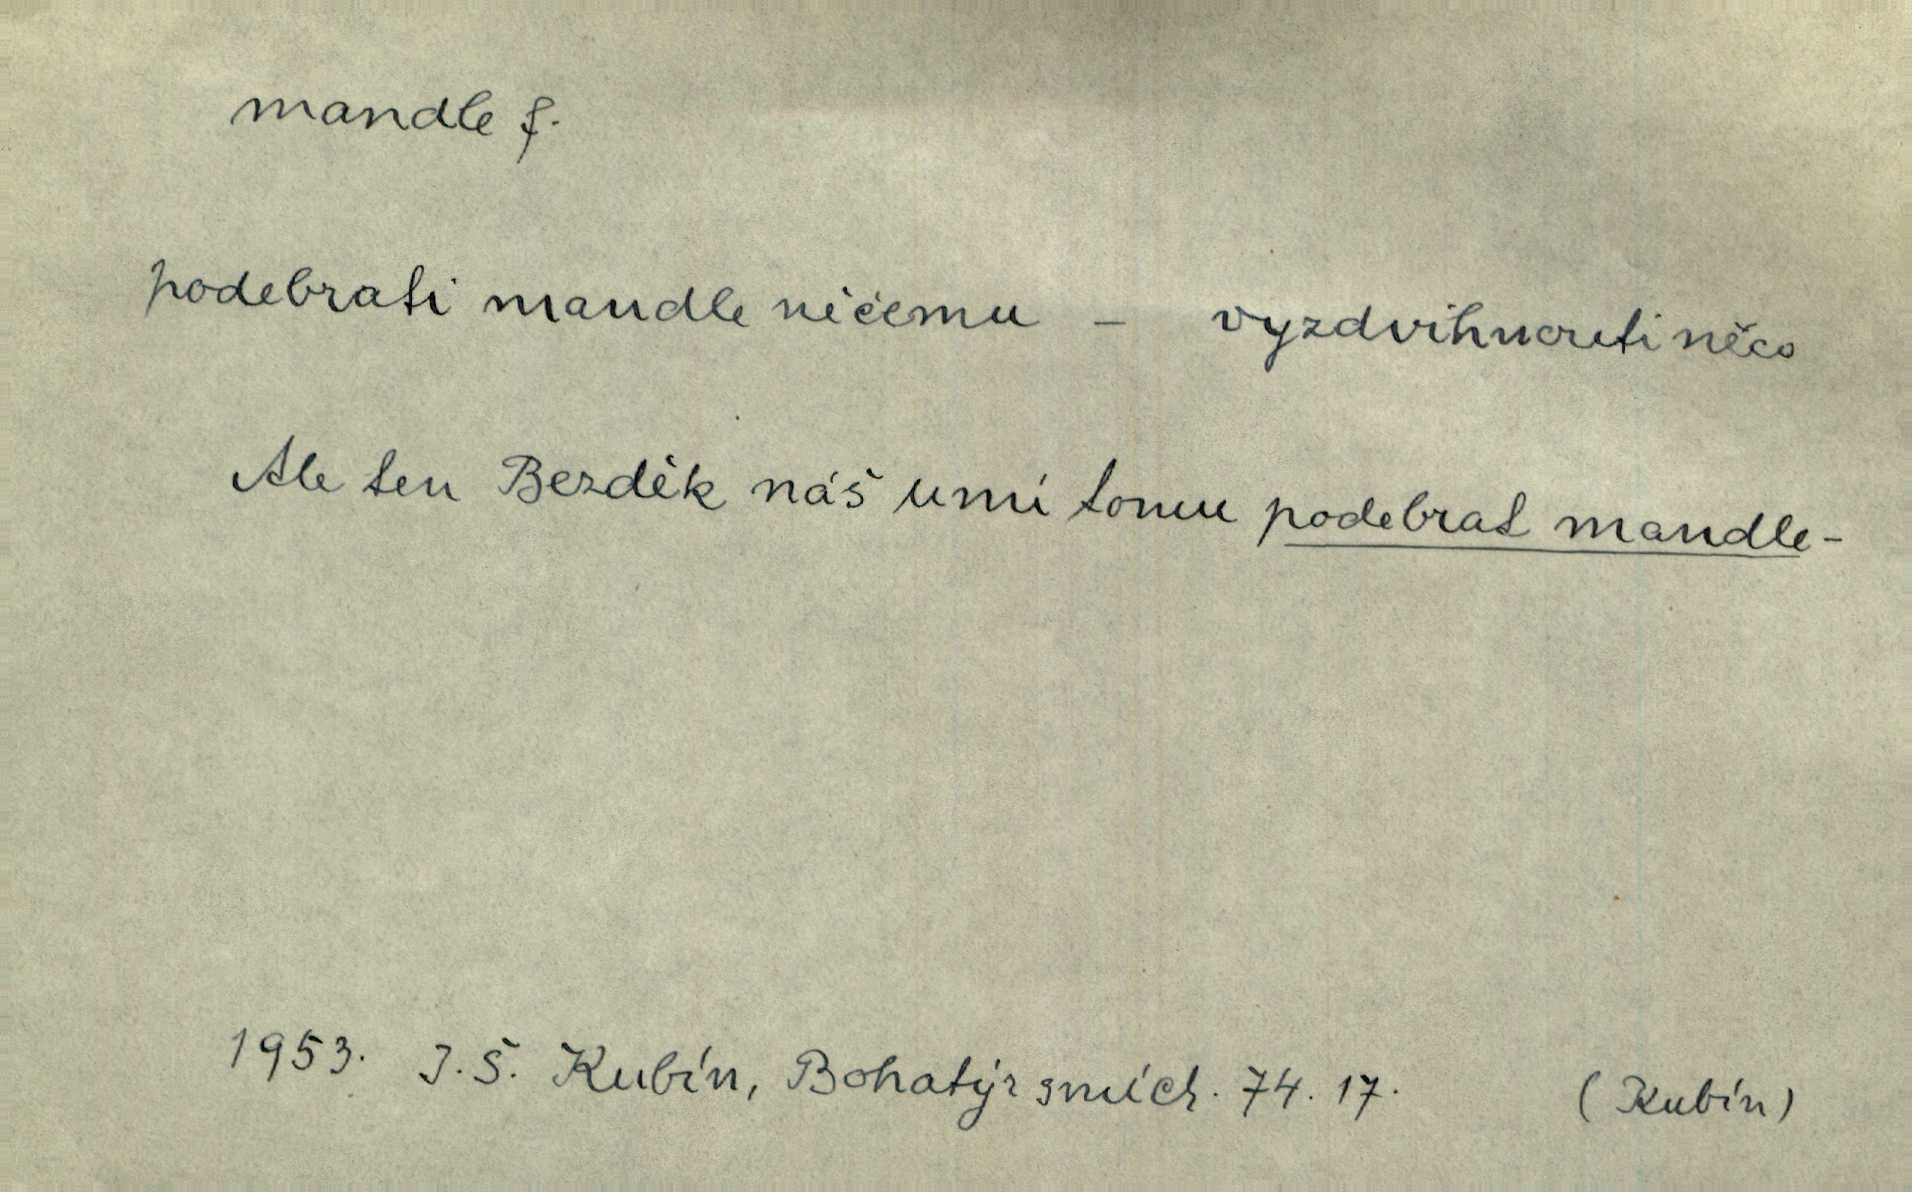 mandle f.
podebrati mandle něčemu – vyzdvihnouti něco
Ale ten Bezděk náš umí tomu podebrat mandle -
1953. J. Š. Kubín, Bohatýr smích. 74. 17. (Kubín)